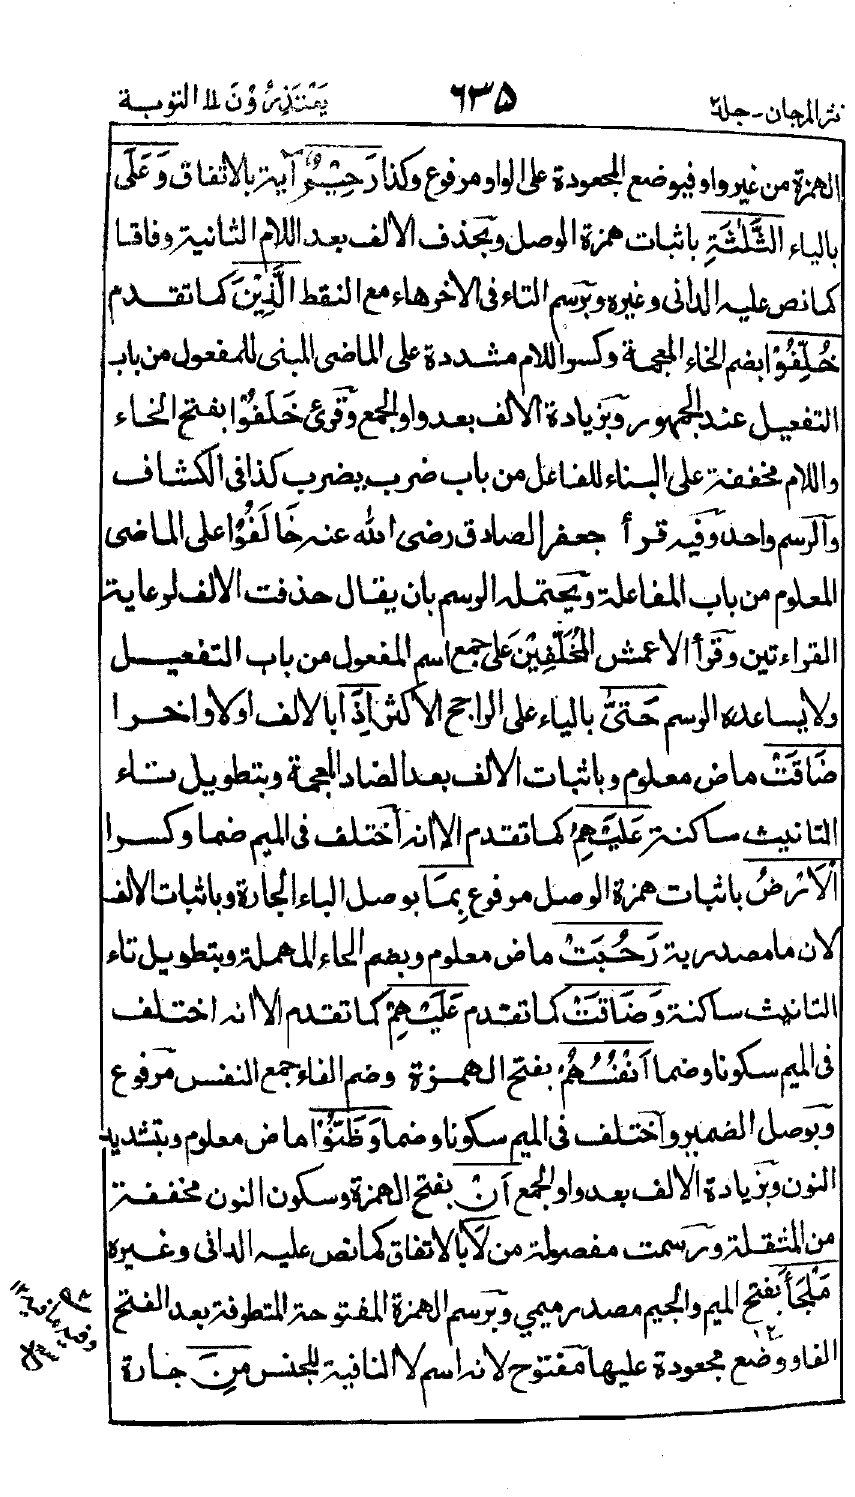 نثر المرجان - جلد ٢
٦٣٥
يَعْتَذِرُوْنَ ١١ التوبة
الهمزة من غير واو فبوضع المجعودة على الواو مرفوع وكذا رَحِيْمٌ آية بالاتفاق وَعَلَى
بالياء الثَّلٰثَةِ باثبات همزة الوصل وبحذف الالف بعد اللام الثانية وفاقا
كما نص عليه الدانى وغيره وبرسم التاء فى الأخر هاء مع النقط الَّذِيْنَ كما تقدم
خُلِّفُوْا بضم الخاء المعجمة وكسر اللام مشددة على الماضى المبنى للمفعول من باب
التفعيل عند الجمهور وبزيادة الالف بعد واو الجمع وقرئ خَلَفُوْا بفتح الخاء
واللام مخففة على البناء للفاعل من باب ضرب يضرب كذا فى الكشاف
والرسم واحد وفيه قرأ جعفر الصادق رضى الله عنه خَالَفُوْا على الماضى
المعلوم من باب المفاعلة ويحتمله الرسم بان يقال حذفت الالف لرعاية
القراءتين وقرأ الاعمش المُخَلَّفِيْنَ على جمع اسم المفعول من باب التفعيل
ولا يساعده الرسم حَتىّٰ بالياء على الراجح الأكثر اِذَا بالالف اولا واخرا
ضَاقَتْ ماض معلوم وباثبات الالف بعد الضاد المعجمة وبتطويل تاء
التانيث ساكنة عَلَيْهِمُ كما تقدم الا انه اختلف فى الميم ضما وكسرا
الْاَرْضُ باثبات همزة الوصل مرفوع بِمَا بوصل الباء الجارة وباثبات الالف
لان ما مصدرية رَحُبَتْ ماض معلوم وبضم الحاء المهملة وبتطويل تاء
التانيث ساكنة وَضَاقَتْ كما تقدم عَلَيْهِمْ كما تقدم الا انه اختلف
فى الميم سكونا وضما اَنْفُسُهُمْ بفتح الهمزة وضم الفاء جمع النفس مرفوع
وبوصل الضمير واختلف فى الميم سكونا وضما وَظَنُّوْا ماض معلوم وبتشديد
النون وبزيادة الالف بعد واو الجمع اَنْ بفتح الهمزة وسكون النون مخففة
من المثقلة ورسمت مفصولة من لَا بالاتفاق كما نص عليه الدانى وغيره
مَلْجَأَ بفتح الميم والجيم مصدر ميمي وبرسم الهمزة المفتوحة المتطرفة بعد الفتح
الفا ووضع مجعودة عليها مفتوح لانه اسم لا النافية للجنس مِنَ جارة
وفيه ما فيه ١٢